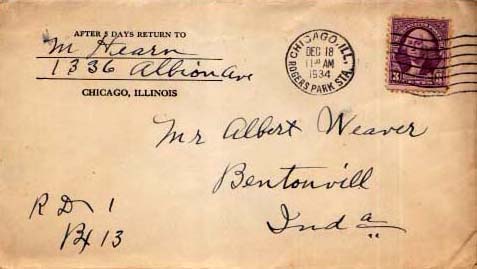 AFTER 5 DAYS RETURN TO
M Hearn
1336 Albion Ave
CHICAGO, ILLINOIS
CHICAGO, ILL.
DEC 18
11 30 AM
1934
ROGERS PARK STA.
3 3
Mr Albert Weaver
Bentonvill
Ind a
R D 1
Bx 13